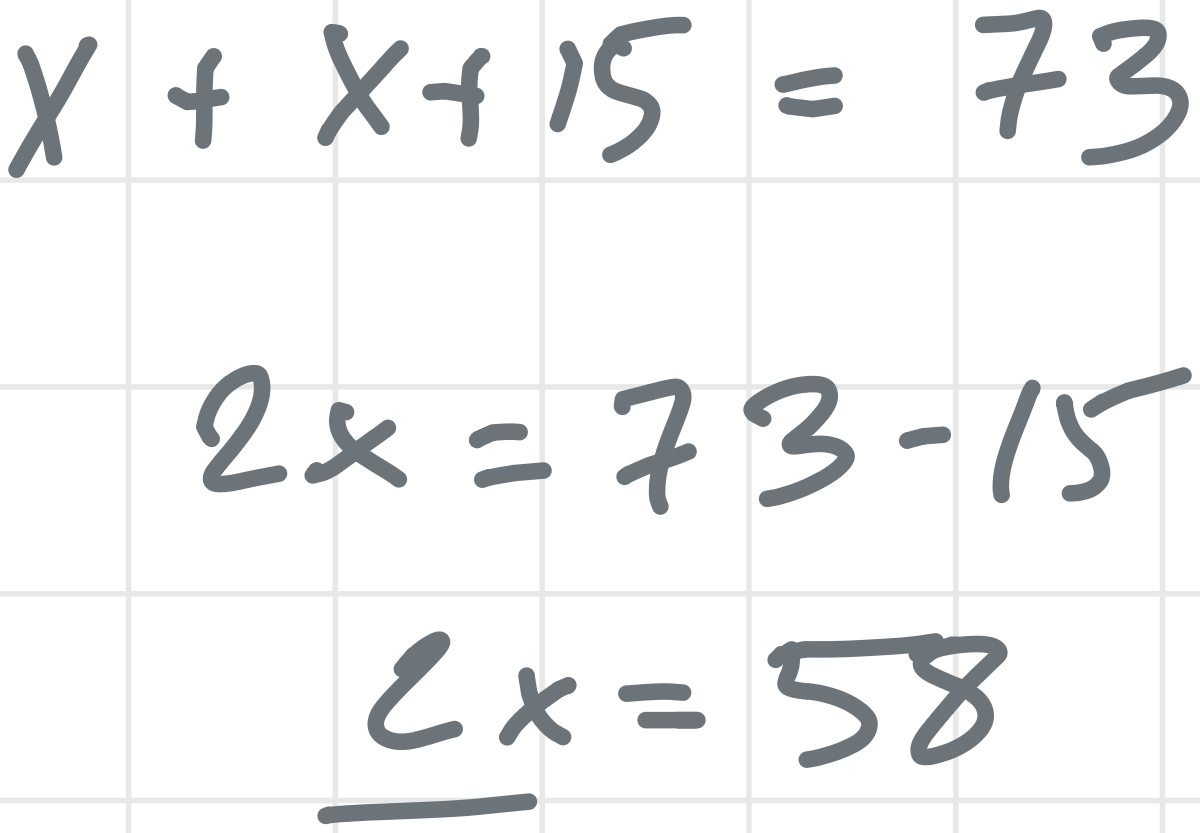 x + x + 15 = 73
2x = 73 - 15
2x = 58